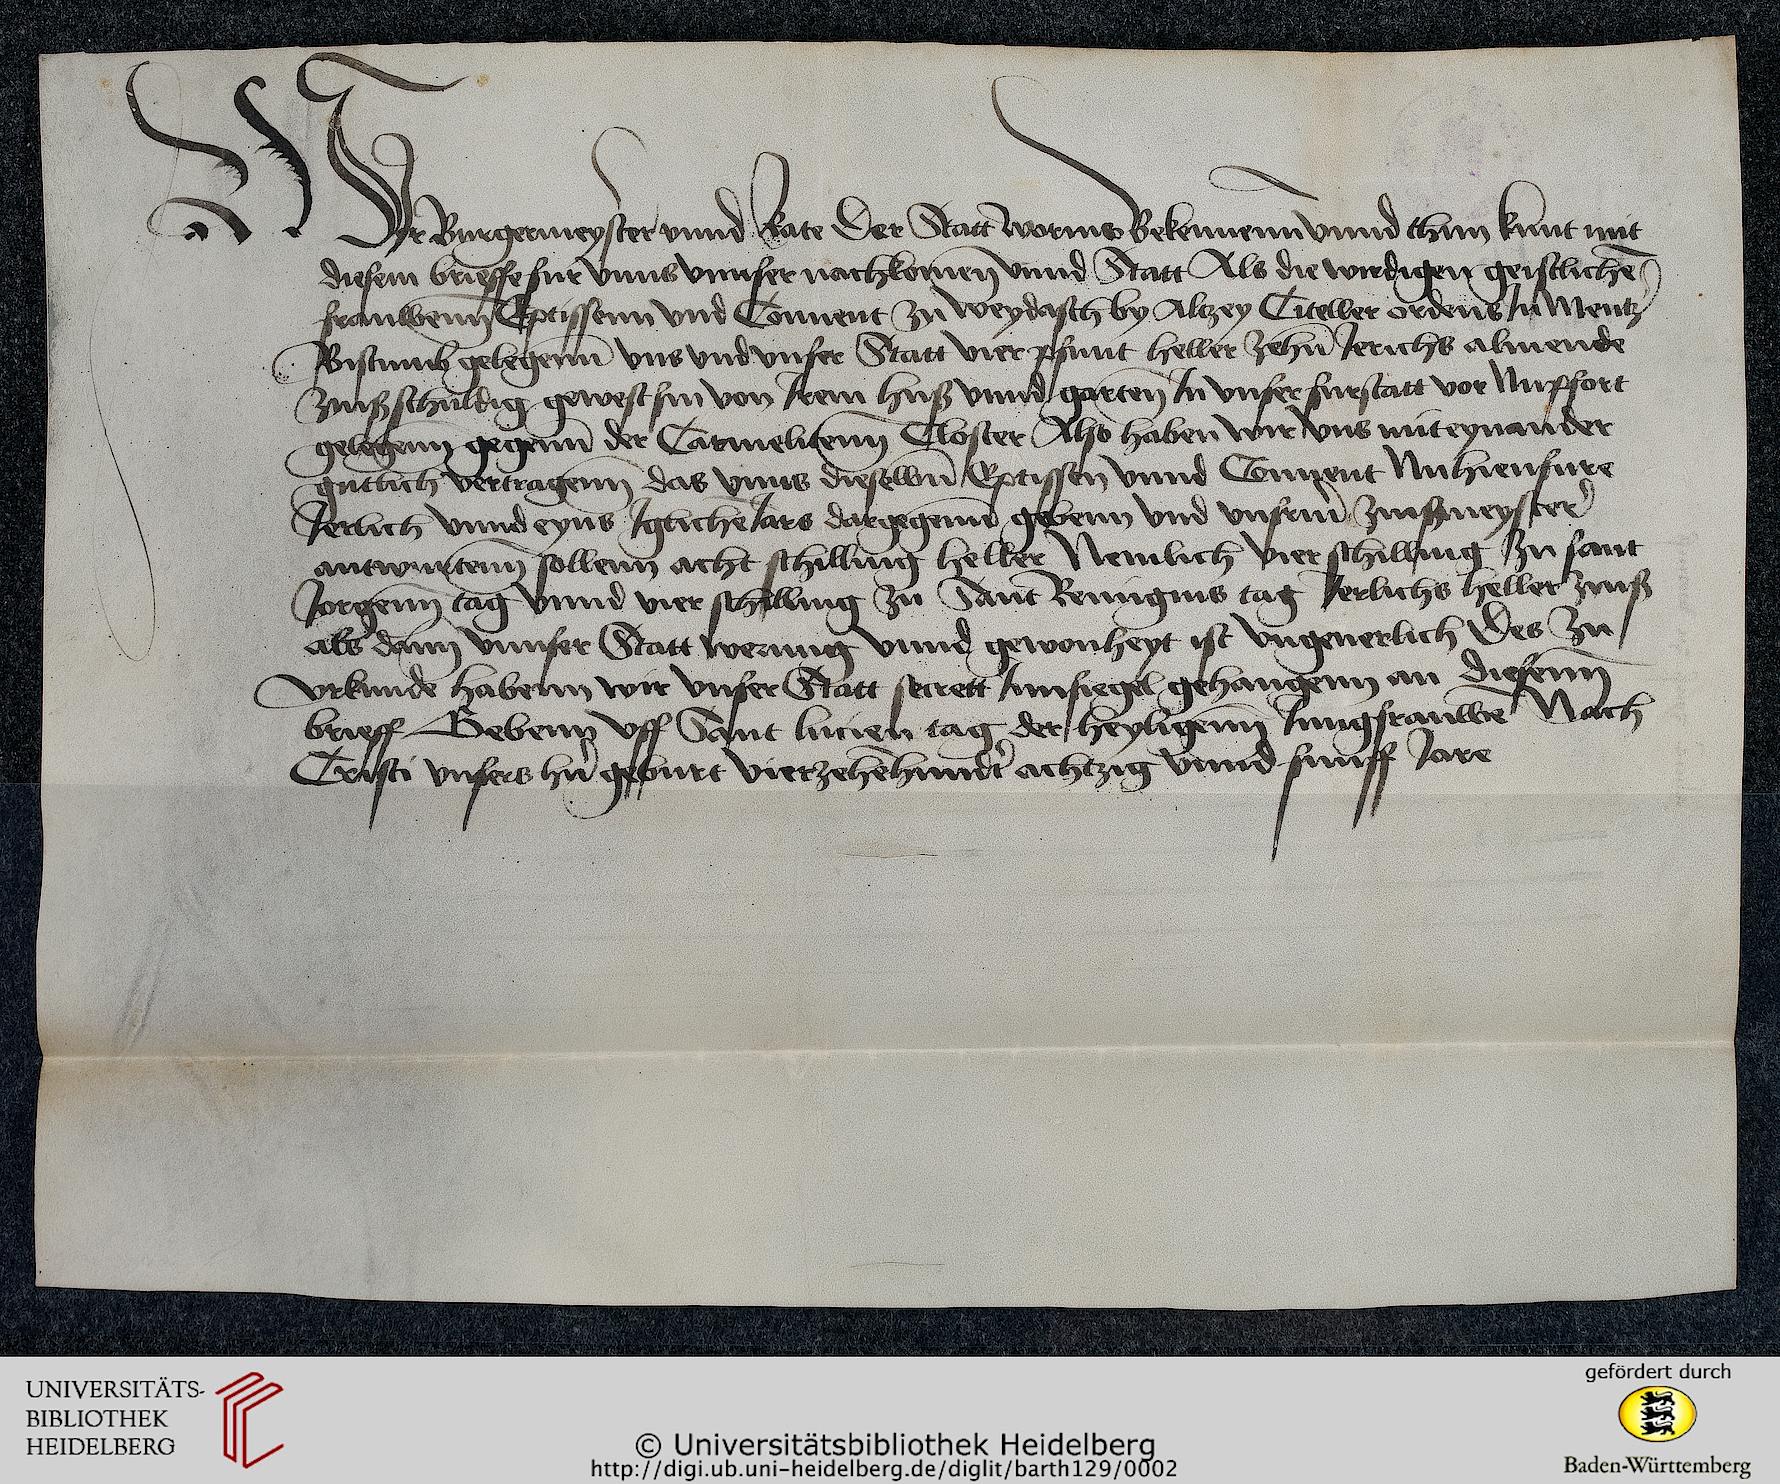 Wir Burgermeyster vnnd Rate Der Statt Worms Bekennenn vnnd thun kunt mit
diesem brieffe fur vnns vnnser nachkomen̄ vnnd Statt Als die wirdigen geistlichē
frauwenn̄ Eptissenn vnd Conuent zu weydasch by Altzey Citeller ordens In Mentz
Bistumb gelegenn̄ vns vnd vnser Statt vier pfunt heller zehn̄ Jerichs almende
zinß schuldig gewest sin von Irem huß vnnd garten̄ In vnser furstatt vor Nuffort
gelegenn gegenn̄ der Carmelitenn̄ Closter Also haben wir vns mit eynander
gutlich vertragenn̄ das vnns dieselbn̄ Eptissen vnnd Conuent Nu hienfure
Jerlich vnnd eyns Iglichē Jars dargegenn̄ gebenn vnd vnsrm̄ zinßmeyster
antwurtenn̄ sollenn acht schilling heller Nemlich vier schilling zu sant
Jorgenn̄ tag vnnd vier schilling zu Sant Remigius tag Jerlichs heller zinß
als dann̄ vnnser Statt werung vnnd gewonheyt ist vngeuerlich Des zu
vrkunde habenn wir vnser Statt secrett Innsiegel gehangenn an diesenn̄
brieff Gebenn vff Sant lucien tag der heyligenn̄ Jungfrauwē Nach
Cristi vnsers hn̄ geburt vierzehēhundr̄t achtzig vnnd funff Jare
UNIVERSITÄTS-
BIBLIOTHEK
HEIDELBERG
© Universitätsbibliothek Heidelberg
http://digi.ub.uni-heidelberg.de/diglit/barth129/0002
gefördert durch
Baden-Württemberg